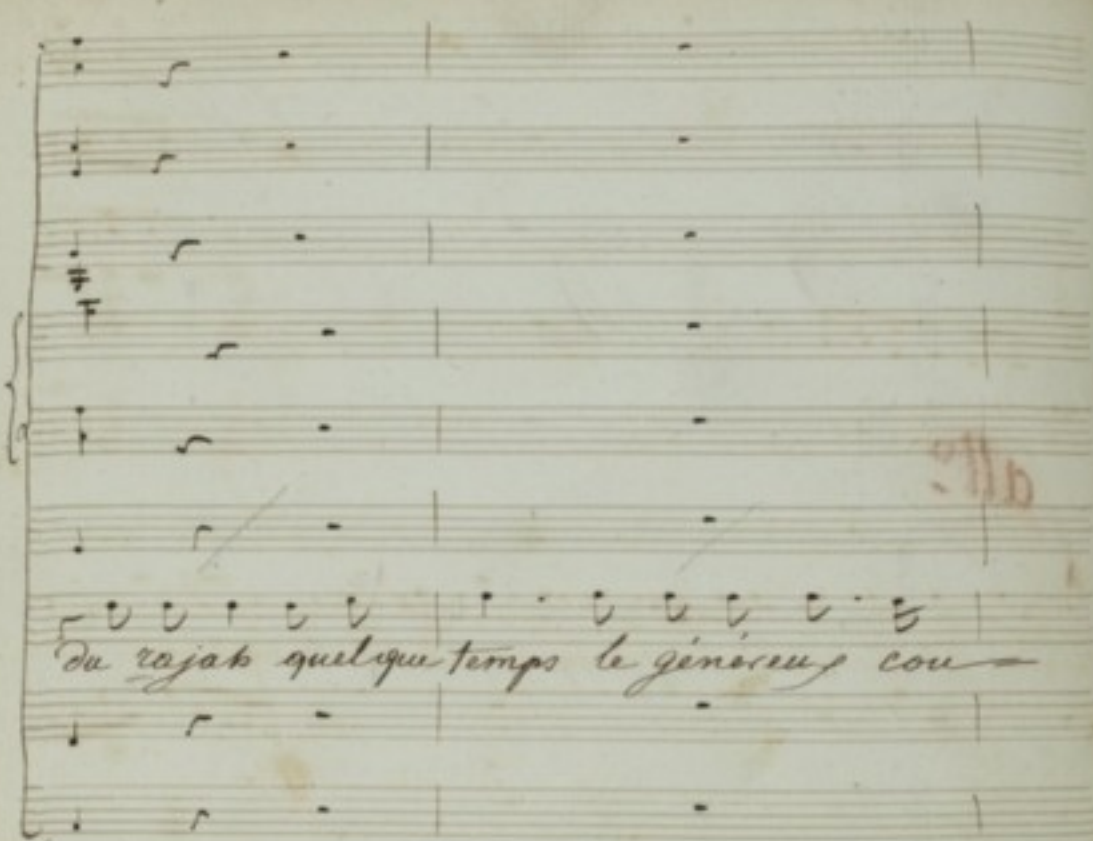 du rajah quelque temps le généreux cou-